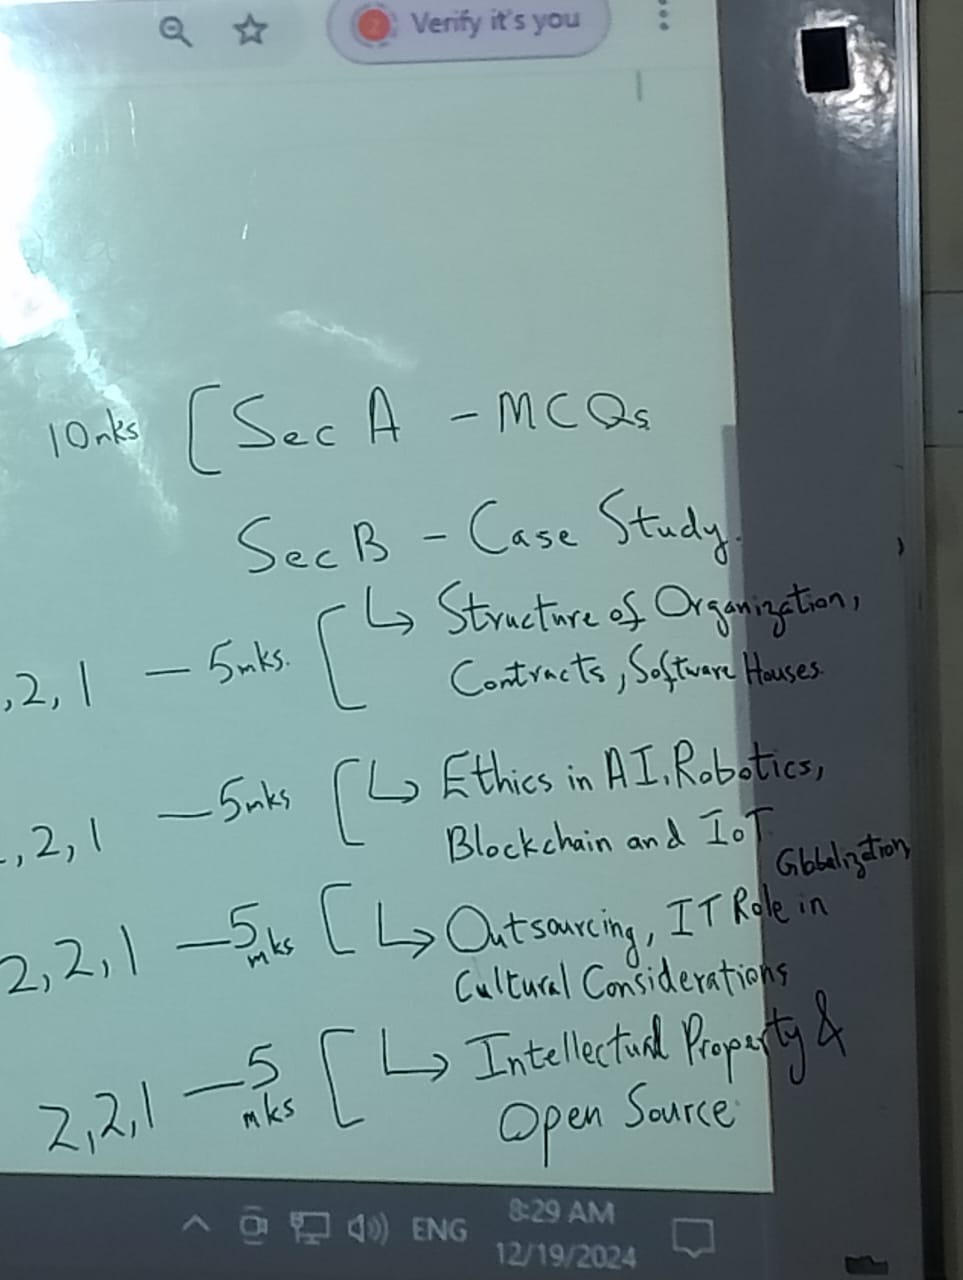 Verify it's you
10mks [ Sec A - MCQs
Sec B - Case Study.
,2,1 - 5mks. [ ↳ Structure of Organization,
Contracts, Software Houses.
,2,1 - 5mks [ ↳ Ethics in AI, Robotics,
Blockchain and IoT
Globalization,
2,2,1 - 5mks [ ↳ Outsourcing, IT Role in
Cultural Considerations
2,2,1 - 5mks [ ↳ Intellectual Property &
Open Source
ENG
8:29 AM
12/19/2024